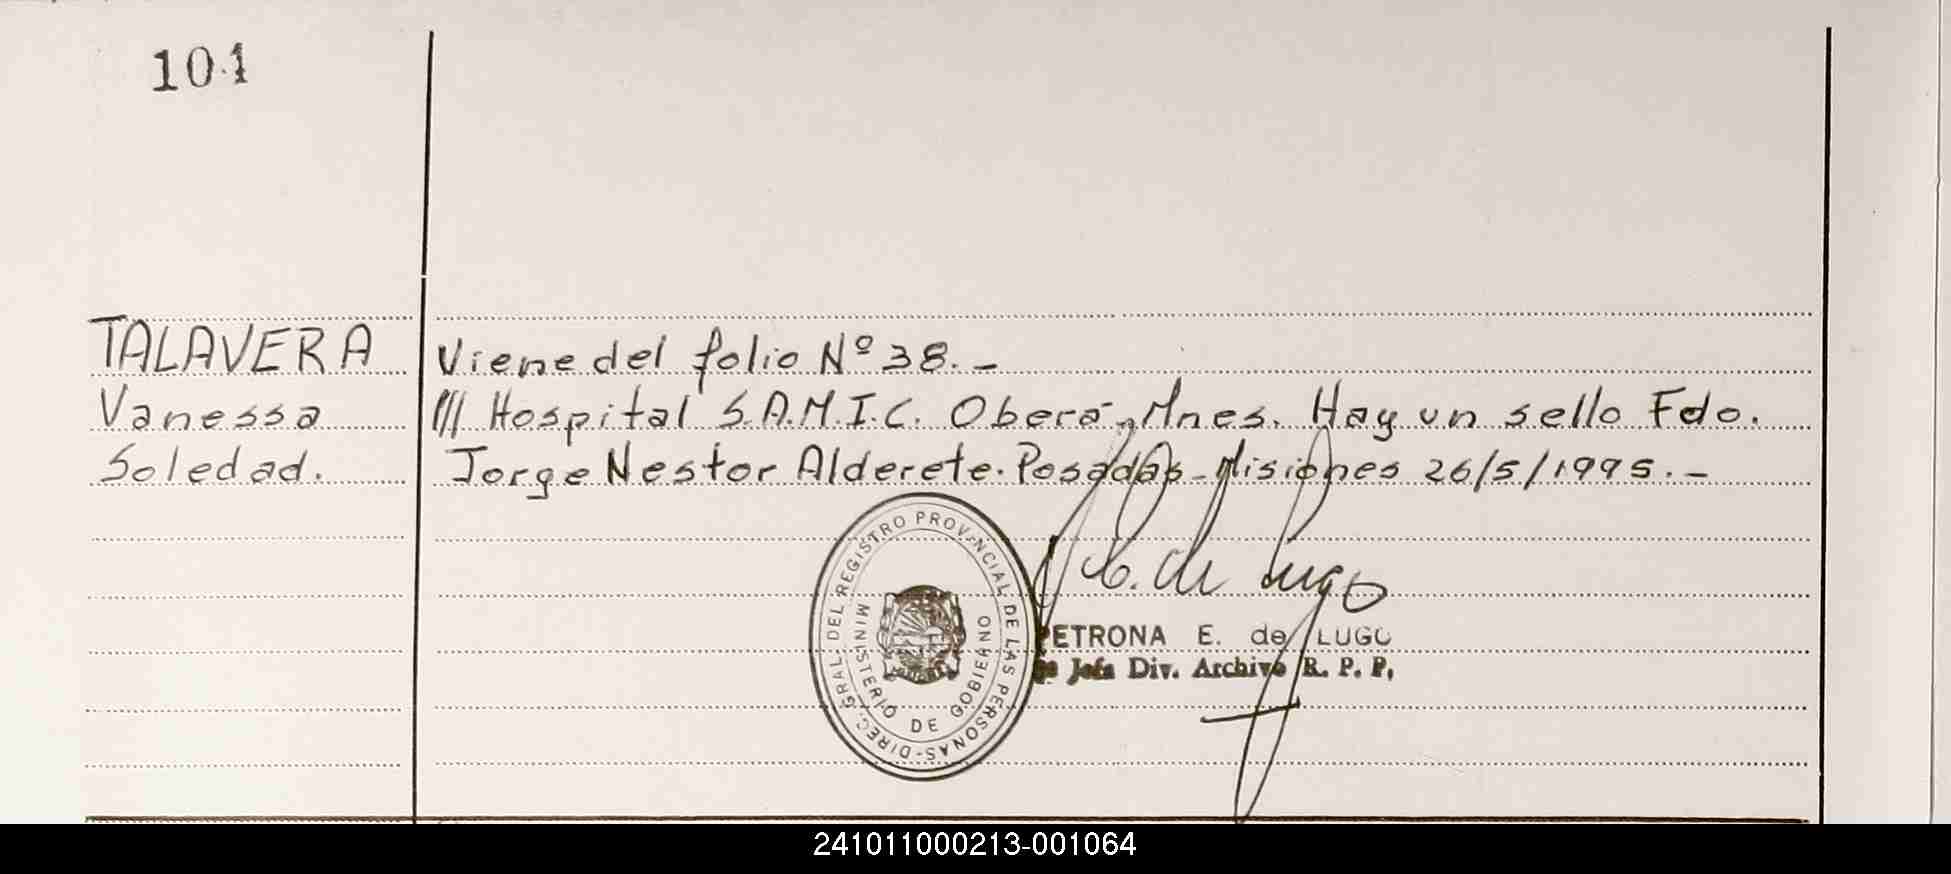 101
TALAVERA
Vanessa
Soledad.
Viene del folio Nº 38.-
/// Hospital S.A.M.I.C. Oberá-Mnes. Hay un sello Fdo.
Jorge Nestor Alderete. Posadas-Misiones 26/5/1995.-
DIREC. GRAL. DEL REGISTRO PROVINCIAL DE LAS PERSONAS-
MINISTERIO DE GOBIERNO
E. de Lugo
PETRONA E. de LUGO
Jefa Div. Archivo R. P. P.
241011000213-001064